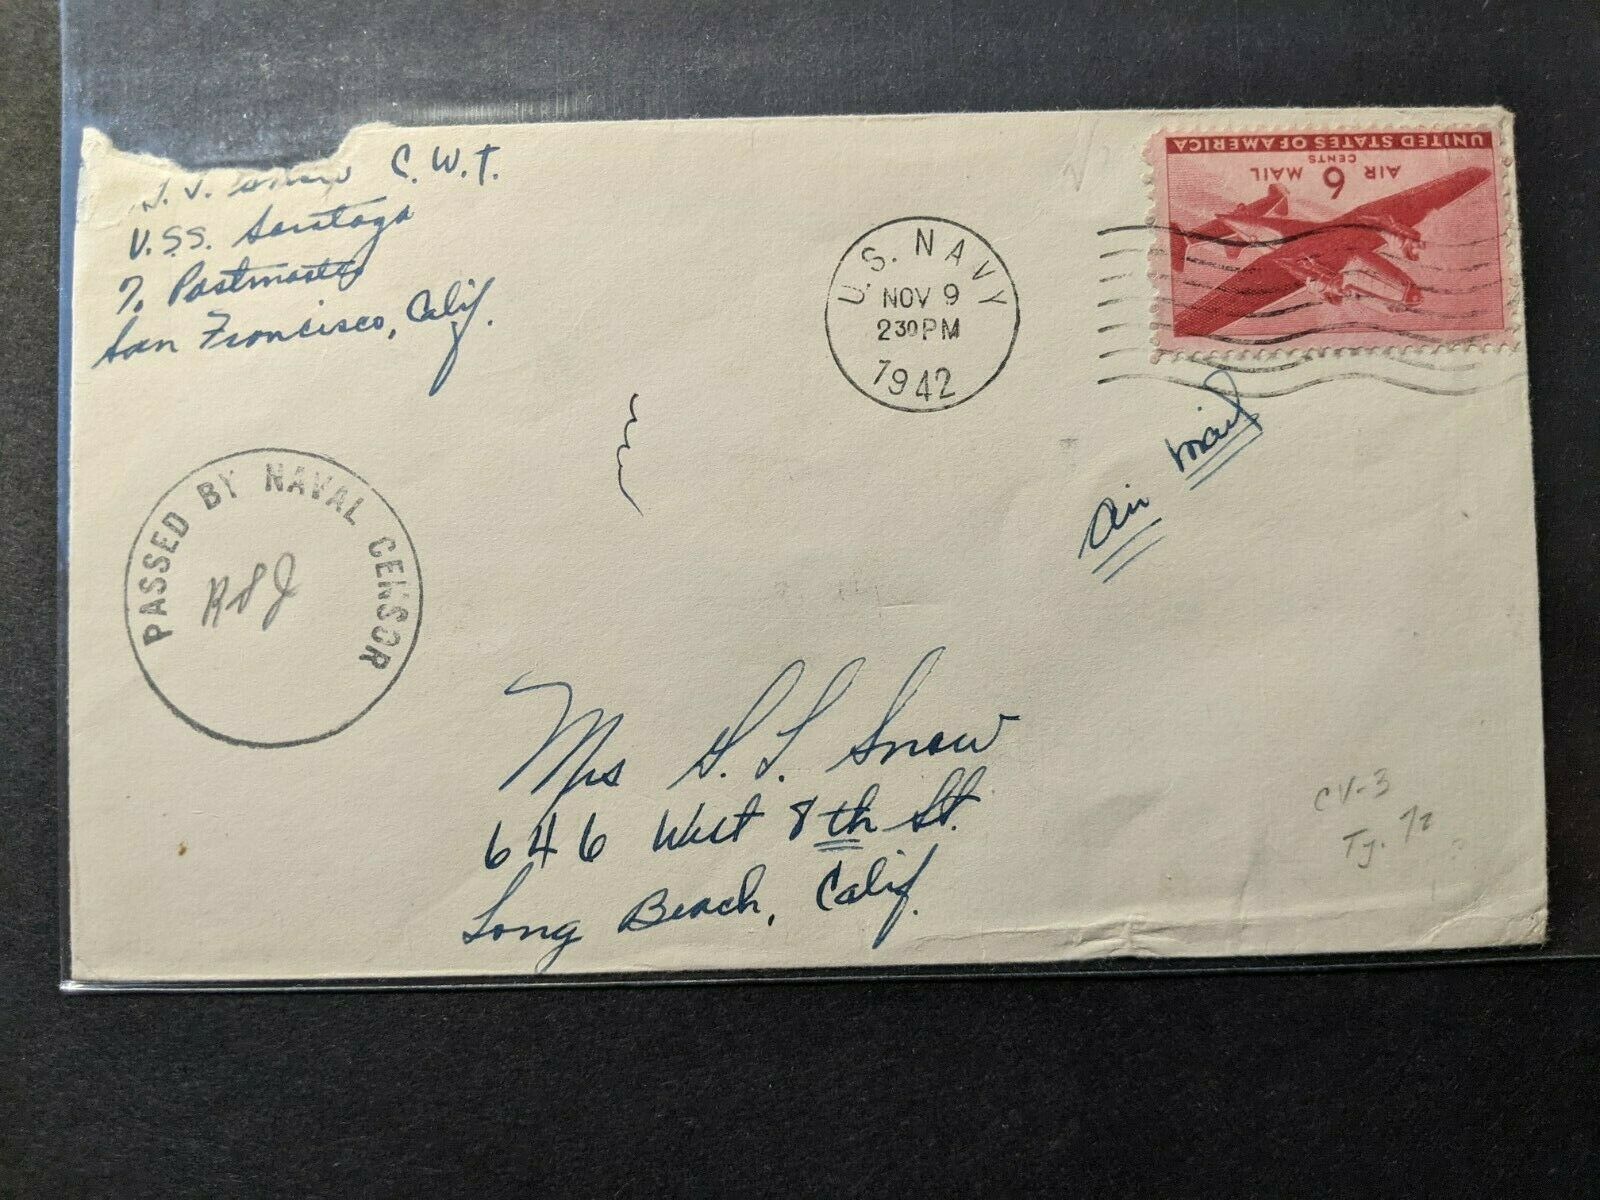 C. W. T.
U.S.S. Saratoga
℅ Postmaster
San Francisco, Calif.
U.S. NAVY
NOV 9
2 30 PM
1942
UNITED STATES OF AMERICA
6
CENTS
AIR MAIL
Air Mail
PASSED BY NAVAL CENSOR
Mrs S. L. Snow
646 West 8th St.
Long Beach, Calif.
CV-3